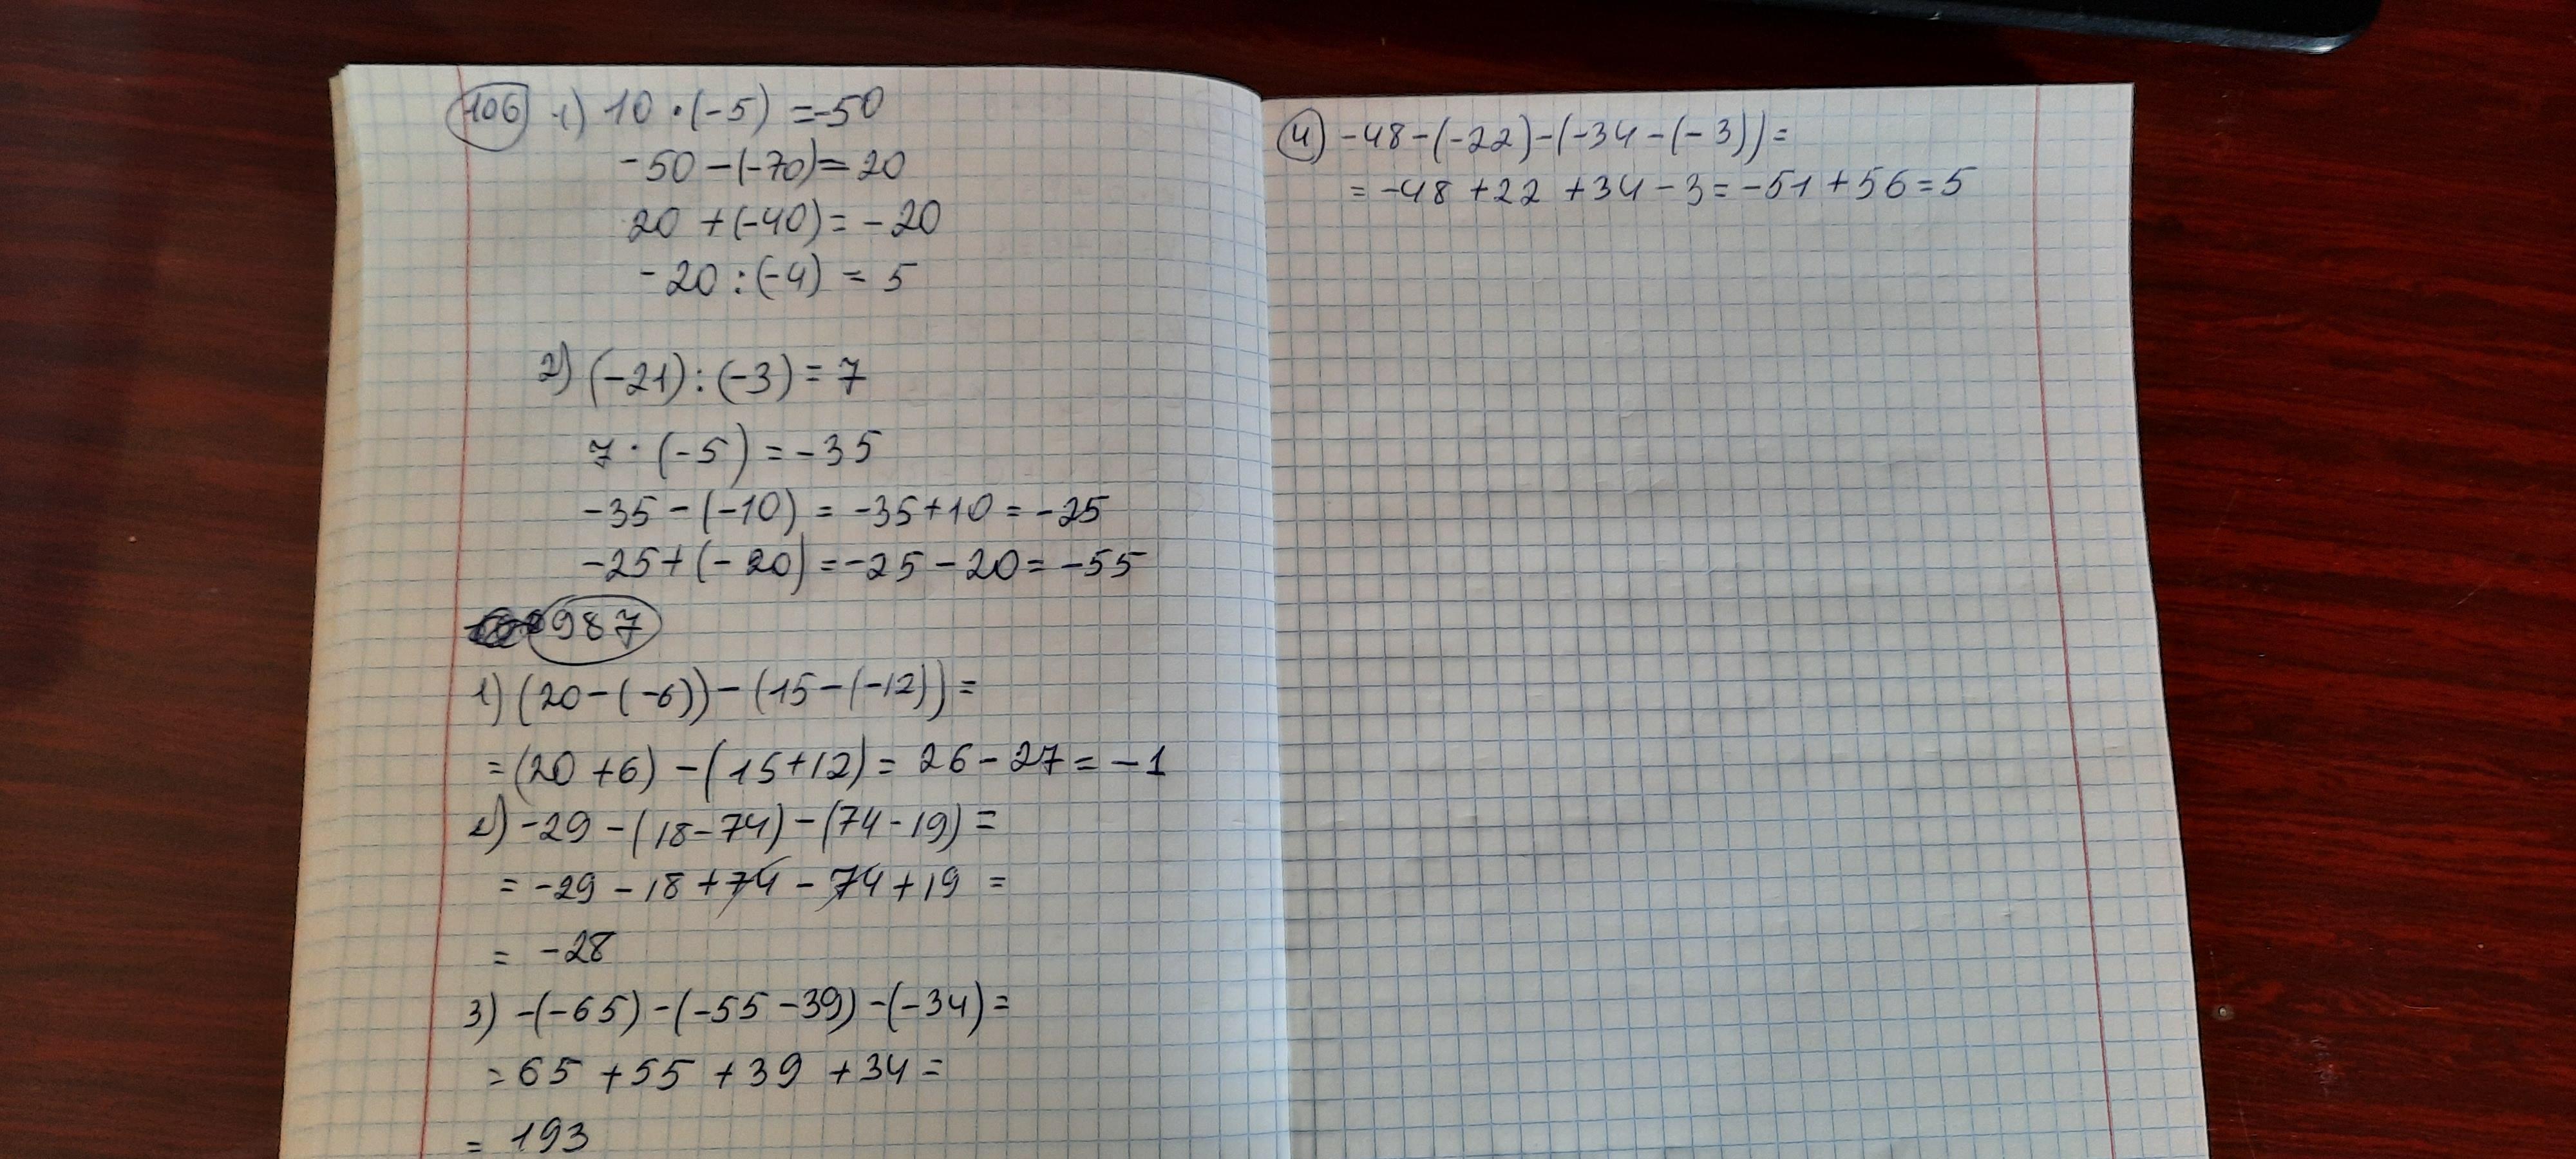 106 1) 10 · (-5) = -50
-50 - (-70) = 20
20 + (-40) = -20
-20 : (-4) = 5
2) (-21) : (-3) = 7
7 · (-5) = -35
-35 - (-10) = -35 + 10 = -25
-25 + (-20) = -25 - 20 = -55
987
1) (20 - (-6)) - (15 - (-12)) =
= (20 + 6) - (15 + 12) = 26 - 27 = -1
2) -29 - (18 - 74) - (74 - 19) =
= -29 - 18 + 74 - 74 + 19 =
= -28
3) -(-65) - (-55 - 39) - (-34) =
= 65 + 55 + 39 + 34 =
= 193
4) -48 - (-22) - (-34 - (-3)) =
= -48 + 22 + 34 - 3 = -51 + 56 = 5